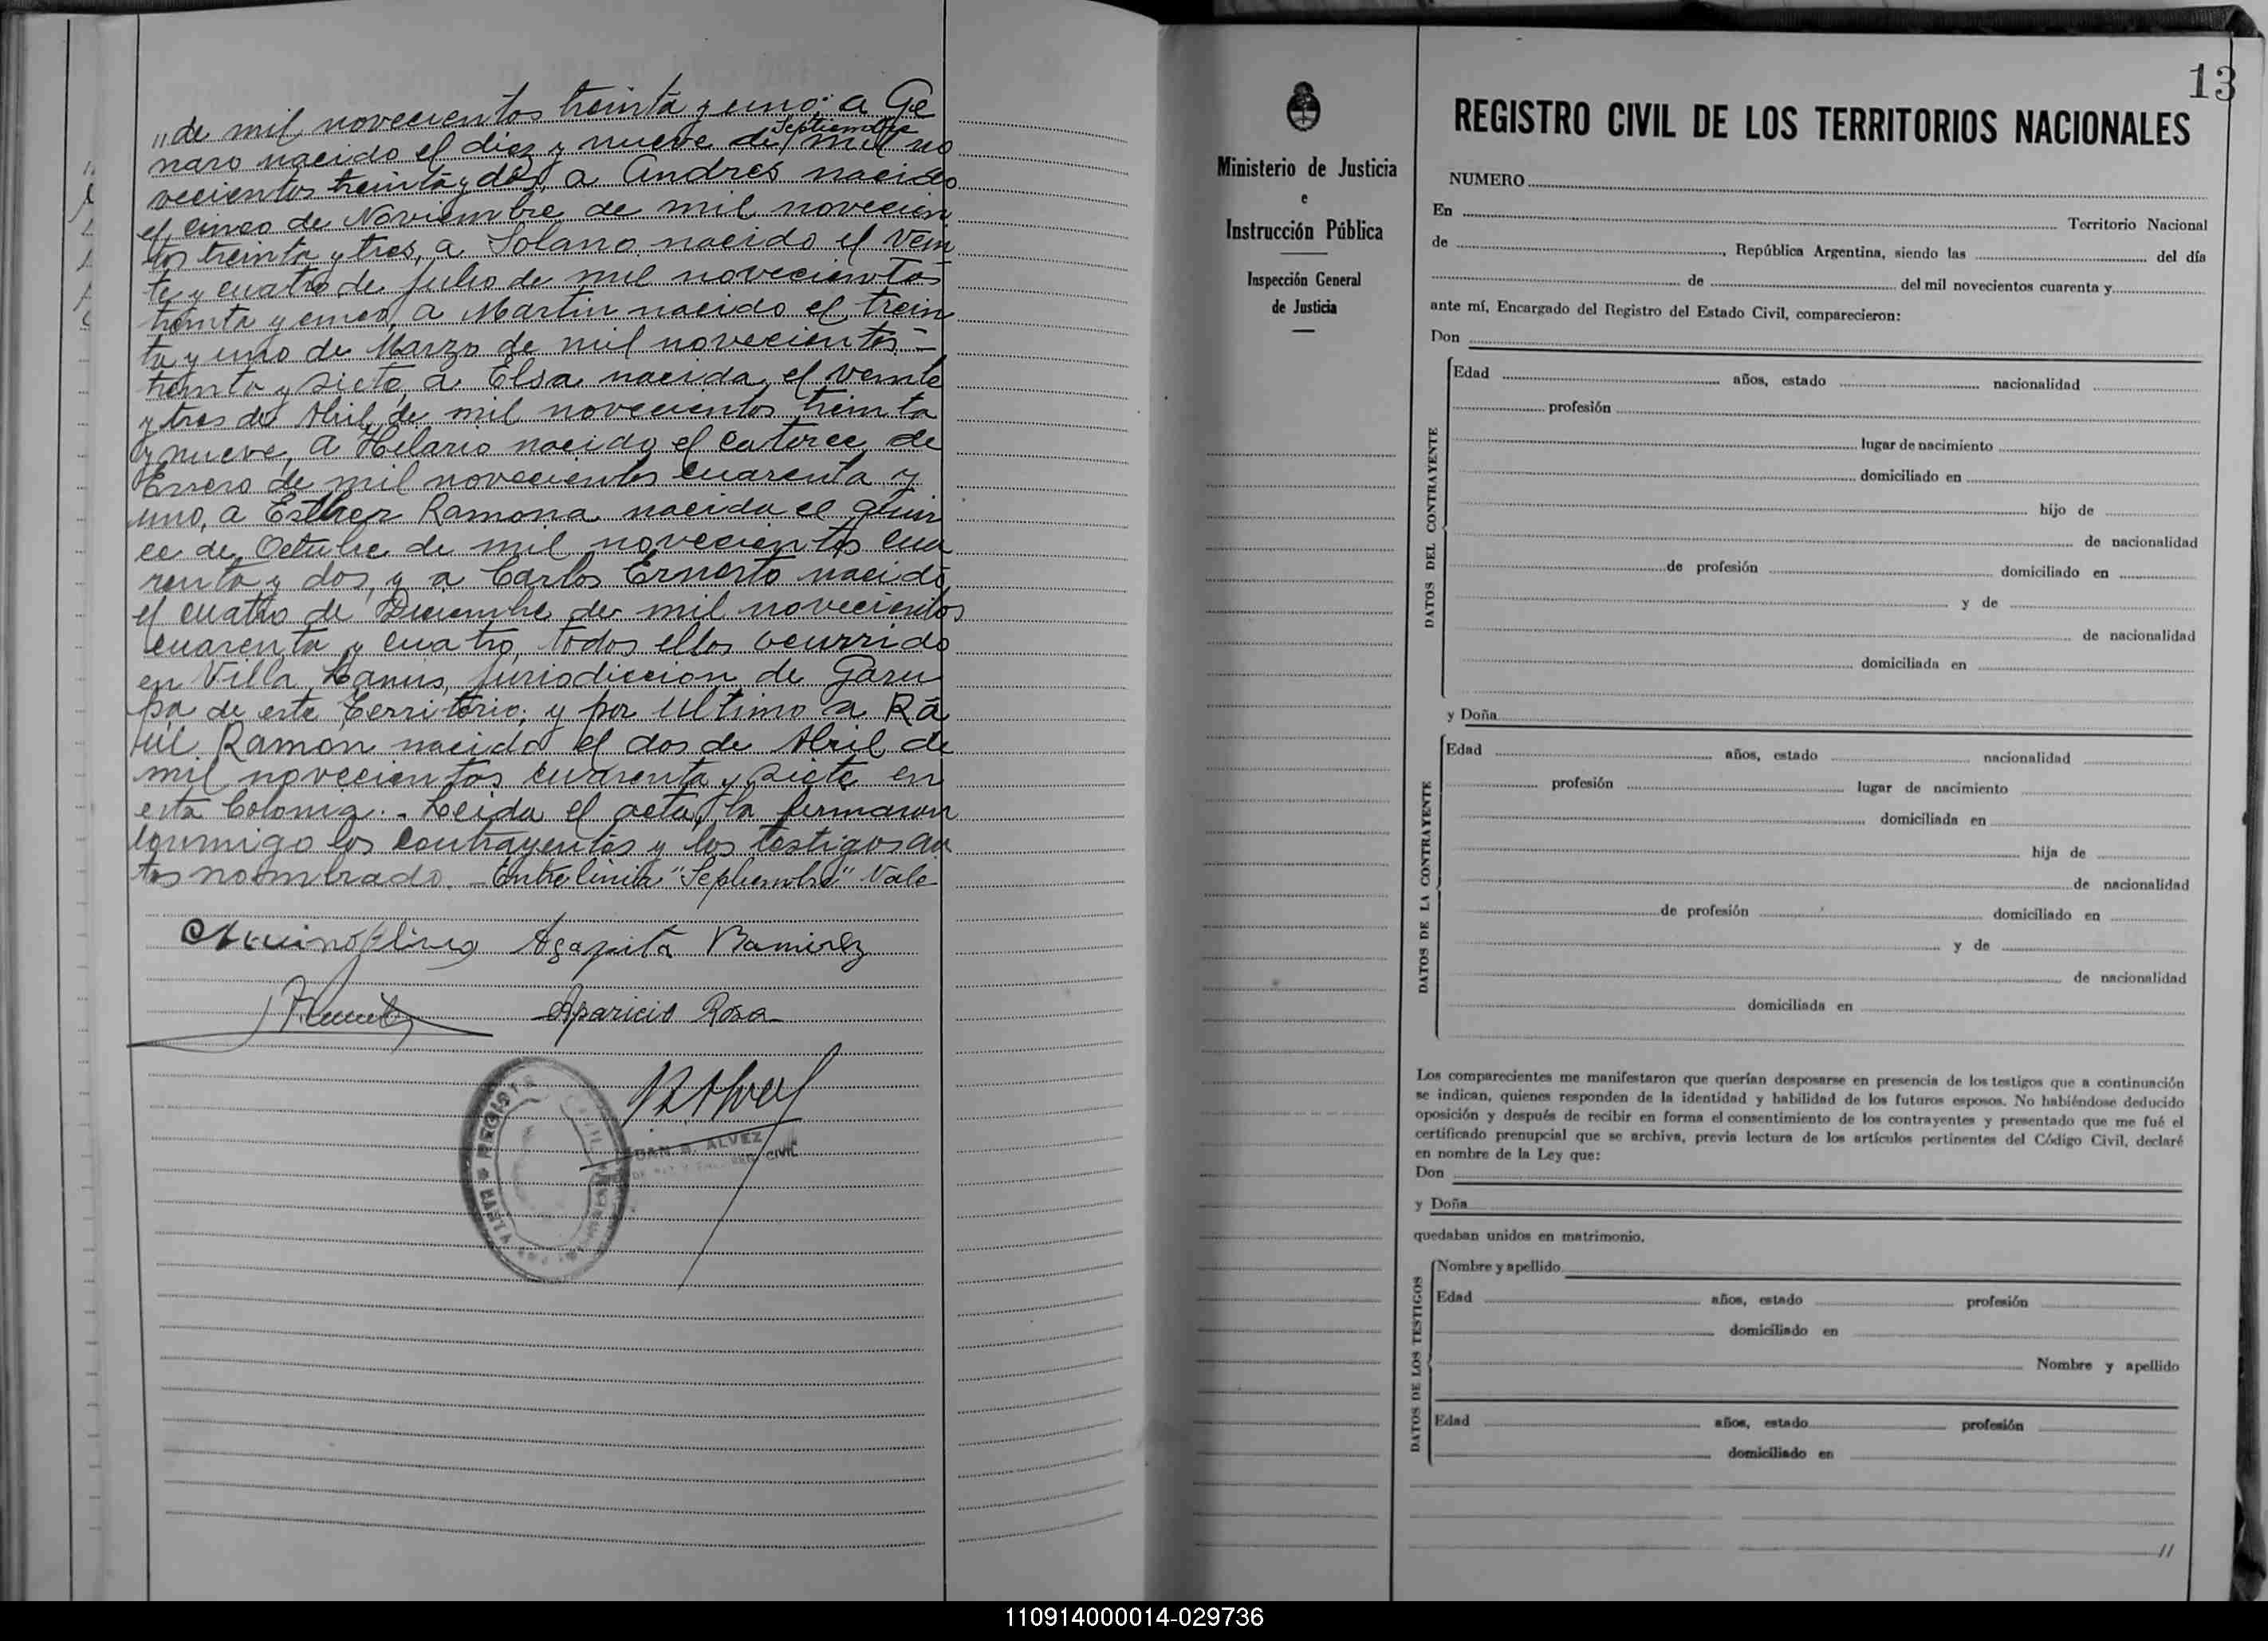 "de mil novecientos treinta y uno; a Ge
naro nacido el diez y nueve de/ mil no
Septiembre
vecientos treinta y dos, a Andres nacido
el cinco de Noviembre de mil novecien
tos treinta y tres, a Solano nacido el Vein
te y cuatro de Julio de mil novecientos
treinta y cinco, a Martin nacido el trein
ta y uno de Marzo de mil novecientos -
treinta y siete, a Elsa nacida el veinte
y tres de Abril de mil novecientos treinta
y nueve, a Hilario nacido el catorce de
Enero de mil novecientos cuarenta y
uno, a Esther Ramona nacida el quin
ce de Octubre de mil novecientos cua
renta y dos, y a Carlos Ernesto nacido
el cuatro de Diciembre de mil novecientos
cuarenta y cuatro, todos ellos ocurrido
en Villa Lanus, jurisdiccion de Garu
pá de este Territorio; y por ultimo a Ra
úl Ramon nacido el dos de Abril de
mil novecientos cuarenta y siete en
esta Colonia. - Leida el acta, la firmaron
conmigo los contrayentes y los testigos an
tes nombrado. - Entre linia "Septiembre" Vale
Agapita Ramirez
Aparicio Rosa
JUAN B. ALVEZ
REG. CIVIL
REGISTRO CIVIL
13
Ministerio de Justicia
e
Instrucción Pública
Inspección General
de Justicia
REGISTRO CIVIL DE LOS TERRITORIOS NACIONALES
NUMERO
En Territorio Nacional
de , República Argentina, siendo las del día
de del mil novecientos cuarenta y
ante mí, Encargado del Registro del Estado Civil, comparecieron:
Don
DATOS DEL CONTRAYENTE
Edad años, estado nacionalidad
profesión
lugar de nacimiento
domiciliado en
hijo de
de nacionalidad
de profesión domiciliado en
y de
de nacionalidad
domiciliada en
y Doña
DATOS DE LA CONTRAYENTE
Edad años, estado nacionalidad
profesión lugar de nacimiento
domiciliada en
hija de
de nacionalidad
de profesión domiciliado en
y de
de nacionalidad
domiciliada en
Los comparecientes me manifestaron que querían desposarse en presencia de los testigos que a continuación
se indican, quienes responden de la identidad y habilidad de los futuros esposos. No habiéndose deducido
oposición y después de recibir en forma el consentimiento de los contrayentes y presentado que me fué el
certificado prenupcial que se archiva, previa lectura de los artículos pertinentes del Código Civil, declaré
en nombre de la Ley que:
Don
y Doña
quedaban unidos en matrimonio.
DATOS DE LOS TESTIGOS
Nombre y apellido
Edad años, estado profesión
domiciliado en
Nombre y apellido
Edad años, estado profesión
domiciliado en
//
110914000014-029736